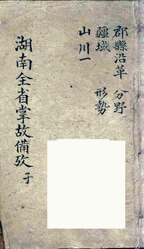 郡縣沿革　分野
疆域　形勢
山川一
湖南全省掌故備攷　子